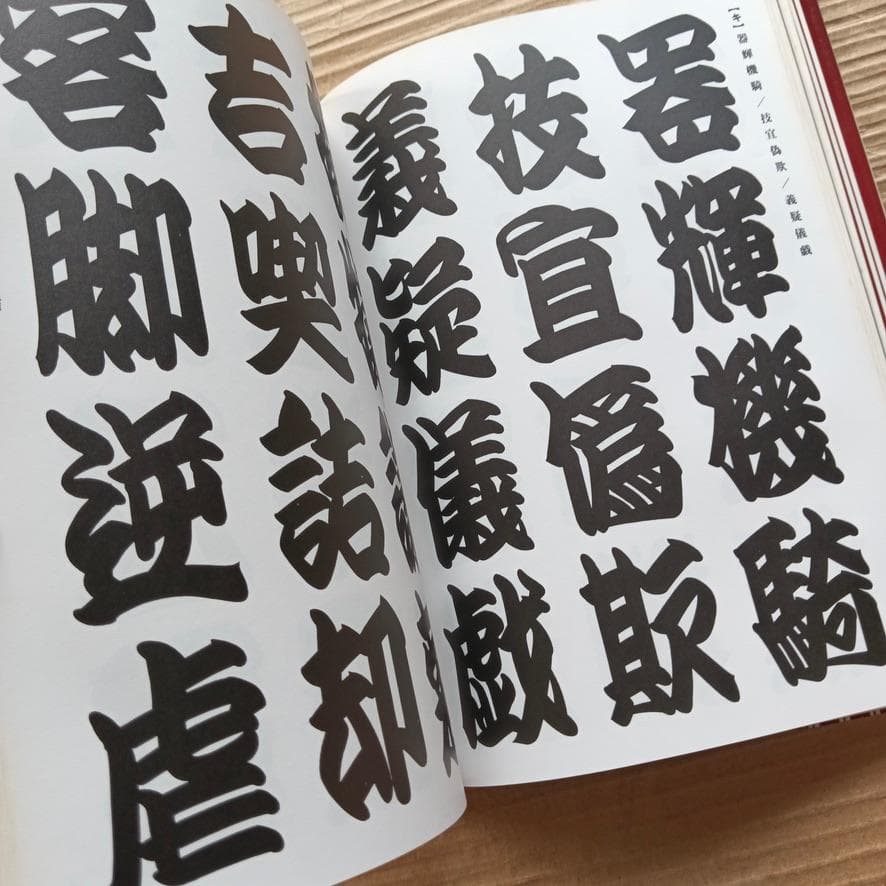 【キ】器輝機騎／技宜偽欺／義疑儀戯
器輝機騎
技宜僞欺
義疑儀戯
吉喫詰却
客脚逆虐